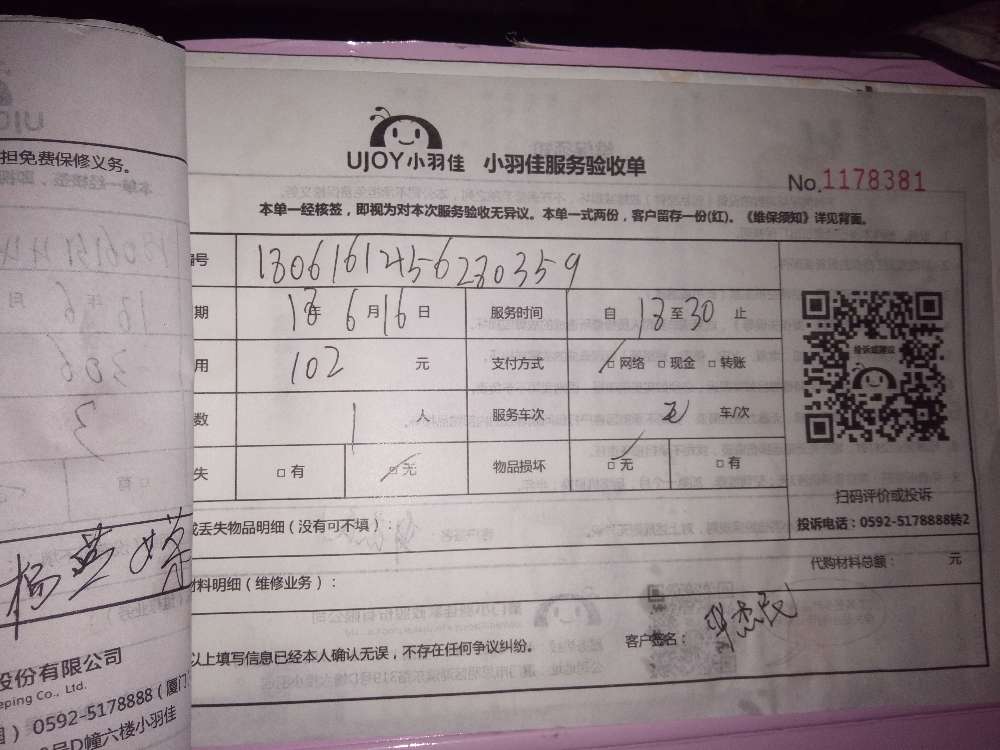 担免费保修义务。
UJOY小羽佳 小羽佳服务验收单
No.1178381
本单一经核签，即视为对本次服务验收无异议。本单一式两份，客户留存一份(红)。《维保须知》详见背面。
编号 18061612456280359
期 18年 6月16日 服务时间 自 18至30 止
用 102 元 支付方式 □网络 □现金 □转账
数 1 人 服务车次 车/次
失 □有 □无 物品损坏 □无 □有
投诉或建议
扫码评价或投诉
投诉电话：0592-5178888转2
或丢失物品明细（没有可不填）：
代购材料总额： 元
材料明细（维修业务）：
以上填写信息已经本人确认无误，不存在任何争议纠纷。
客户签名：
股份有限公司
eping Co., Ltd.
0592-5178888（厦门
号D幢六楼小羽佳